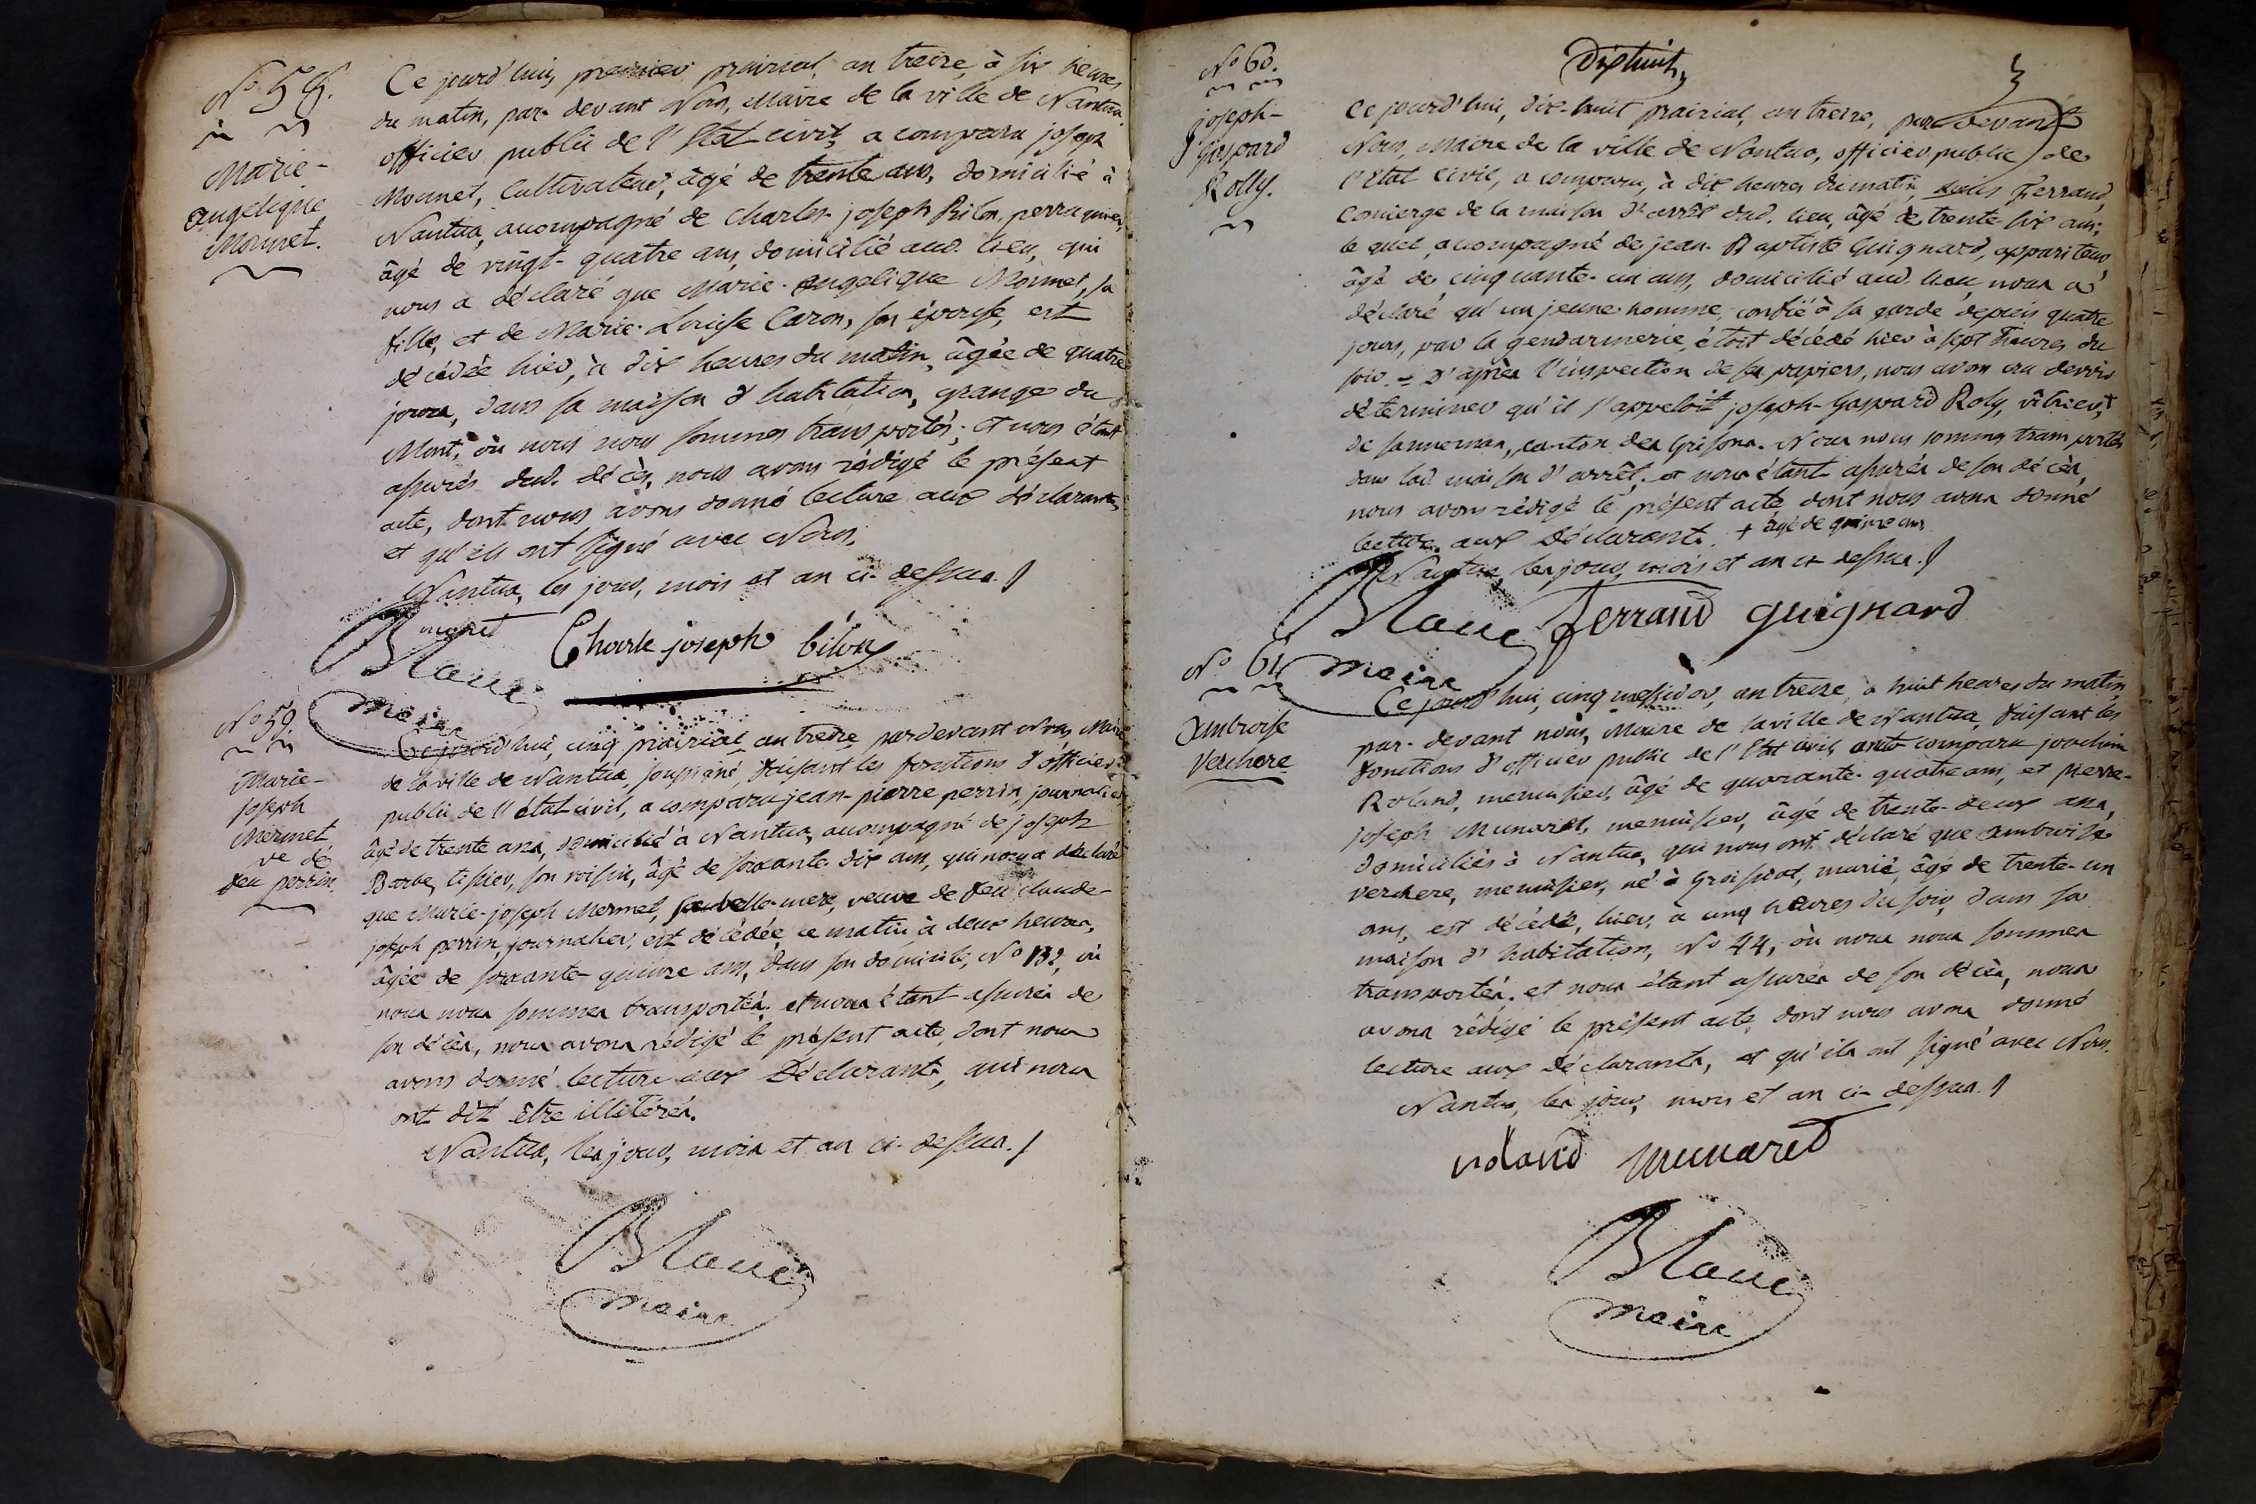 N.° 58.
Marie-
angelique
Monnet.
Ce jourd'hui, premier prairial, an treize, à six heures
du matin, par-devant Nous, Maire de la ville de Nantua,
officier public de l'État civil, a comparu joseph
Monnet, Cultivateur, âgé de trente ans, domicilié à
Nantua, accompagné de charles-joseph Bilon, perruquier,
âgé de vingt-quatre ans, domicilié aud. lieu, qui
nous a déclaré que Marie-angelique Monnet, sa
fille, et de Marie-Louise Caron, son épouse, est
décédée hier, à dix heures du matin, âgée de quatre
jours, dans sa maison d'habitation, grange du
Mont, où nous nous sommes transportés; et nous étant
assurés dud. décès, nous avons rédigé le présent
acte, dont nous avons donné lecture aux déclarants,
et qu'ils ont signé avec Nous.
Nantua, les jour, mois et an ci-dessus.
monet
Charle joseph bilon
Blanc
maire
N.° 59.
Marie-
joseph
Mermet
ve de
feu perrin.
Ce jourd'hui, cinq prairial, an treize, pardevant Nous, Maire
de la ville de Nantua, soussigné, faisant les fonctions d'officier
public de l'état civil, a comparu jean-pierre perrin, journalier,
âgé de trente ans, domicilié à Nantua, accompagné de joseph
Barbe, tissier, son voisin, âgé de soixante-dix ans, qui nous a déclaré
que Marie-joseph Mermet, sa belle-mere, veuve de feu claude-
joseph perrin, journalier, est décédée ce matin, à deux heures,
âgée de soixante-quinze ans, dans son domicile, N.° 132, où
nous nous sommes transportés; et nous étant assurés de
son décès, nous avons rédigé le présent acte, dont nous
avons donné lecture aux Déclarants, qui nous
ont dit être illitérés.
Nantua, les jour, mois et an ci-dessus.
Blanc
maire
Dixhuit
N.° 60.
joseph-
Gaspard
Rolly.
Ce jourd'hui, dix-huit prairial, an treize, par devant
Nous, Maire de la ville de Nantua, officier public de
l'État Civil, a comparu, à dix heures du matin, Louis Ferrand,
Concierge de la maison d'arrêt dud. lieu, âgé de trente six ans;
le quel, accompagné de jean-Baptiste Guignard, appariteur,
âgé de cinquante-un ans, domicilié aud. lieu, nous a
déclaré qu'un jeune homme, confié à sa garde depuis quatre
jours, par la gendarmerie, étoit décédé hier à sept heures du
soir. D'après l'inspection de ses papiers, nous avons cru devoir
déterminer qu'il s'appeloit joseph-Gaspard Roly, vitrier,+
de canton des Grisons. Nous nous sommes transportés
dans lad. maison d'arrêt; et nous étant assurés de son décès,
nous avons rédigé le présent acte, dont nous avons donné
lecture aux Déclarants. + âgé de quinze ans
Nantua, les jour, mois et an ci-dessus.
Blanc ferrand guignard
maire
N.° 61.
Ambroise
Verchere
Ce jourd'hui, cinq messidor, an treize, à huit heures du matin,
par-devant nous, Maire de la ville de Nantua, faisant les
fonctions d'officier public de l'État civil, ont comparu joachim
Roland, menuisier, âgé de quarante-quatre ans, et pierre-
joseph Munaret, menuisier, âgé de trente-deux ans,
domiciliés à Nantua, qui nous ont déclaré que ambroise
Verchere, menuisier, né à Groissiat, marié, âgé de trente-un
ans, est décédé, hier, à cinq heures du soir, dans sa
maison d'habitation, N.° 44, où nous nous sommes
transportés; et nous étant assurés de son décès, nous
avons rédigé le présent acte, dont nous avons donné
lecture aux Déclarants, et qu'ils ont signé avec Nous.
Nantua, les jour, mois et an ci-dessus.
roland munaret
Blanc
maire